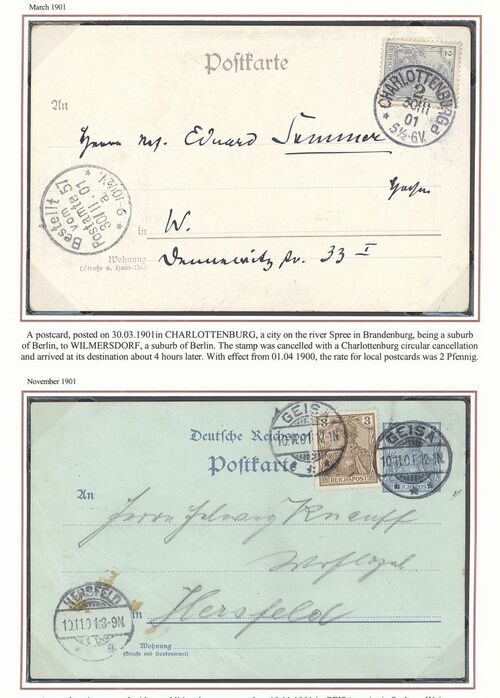 March 1901
Postkarte
2
REICHSPOST
CHARLOTTENBURG
2
30III
01
5½-6V.
An
Herrn Eduard Sommer
Bestellt
vom
Postamte 57
a.
in W.
Dennewitz Str. 33 I
Wohnung
(Straße u. Haus-Nr.)
A postcard, posted on 30.03.1901in CHARLOTTENBURG, a city on the river Spree in Brandenburg, being a suburb
of Berlin, to WILMERSDORF, a suburb of Berlin. The stamp was cancelled with a Charlottenburg circular cancellation
and arrived at its destination about 4 hours later. With effect from 01.04 1900, the rate for local postcards was 2 Pfennig.
November 1901
Deutsche Reichspost
Postkarte
3
3
REICHSPOST
GEISA
10.11.01.12-1N
GEISA
10.11.01.12-1N
REICHSPOST
An
Herrn Helwig Knauff
HERSFELD
10.11.01.8-9N.
in Hersfeld
Wohnung
(Straße und Hausnummer)